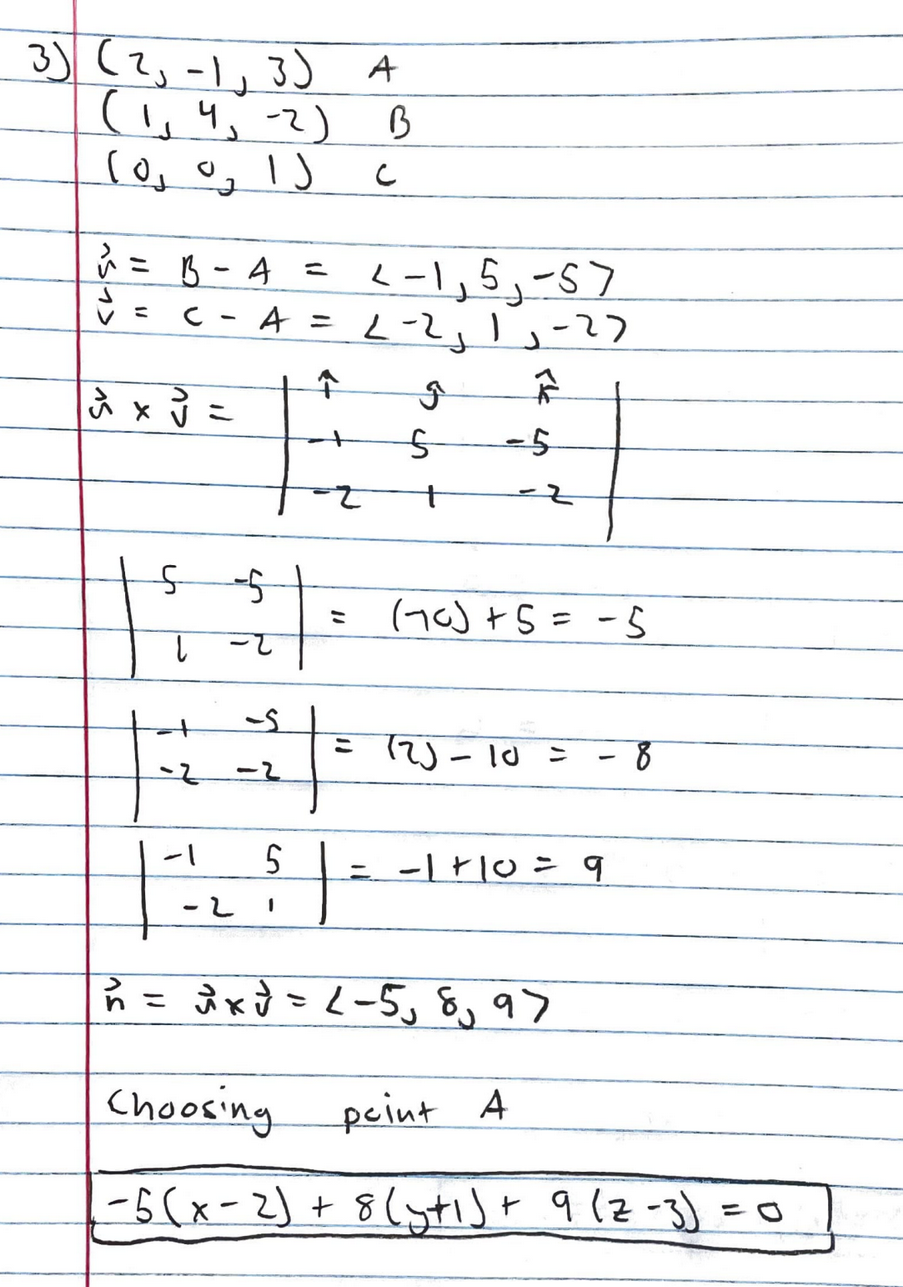 3) (2, -1, 3) A
(1, 4, -2) B
(0, 0, 1) C
u⃗ = B - A = <-1, 5, -5>
v⃗ = C - A = <-2, 1, -2>
u⃗ × v⃗ = | î ĵ k̂ |
| -1 5 -5 |
| -2 1 -2 |
| 5 -5 |
| 1 -2 | = (-10) + 5 = -5
| -1 -5 |
| -2 -2 | = (2) - 10 = -8
| -1 5 |
| -2 1 | = -1 + 10 = 9
n⃗ = u⃗ × v⃗ = <-5, 8, 9>
Choosing point A
-5(x-2) + 8(y+1) + 9(z-3) = 0